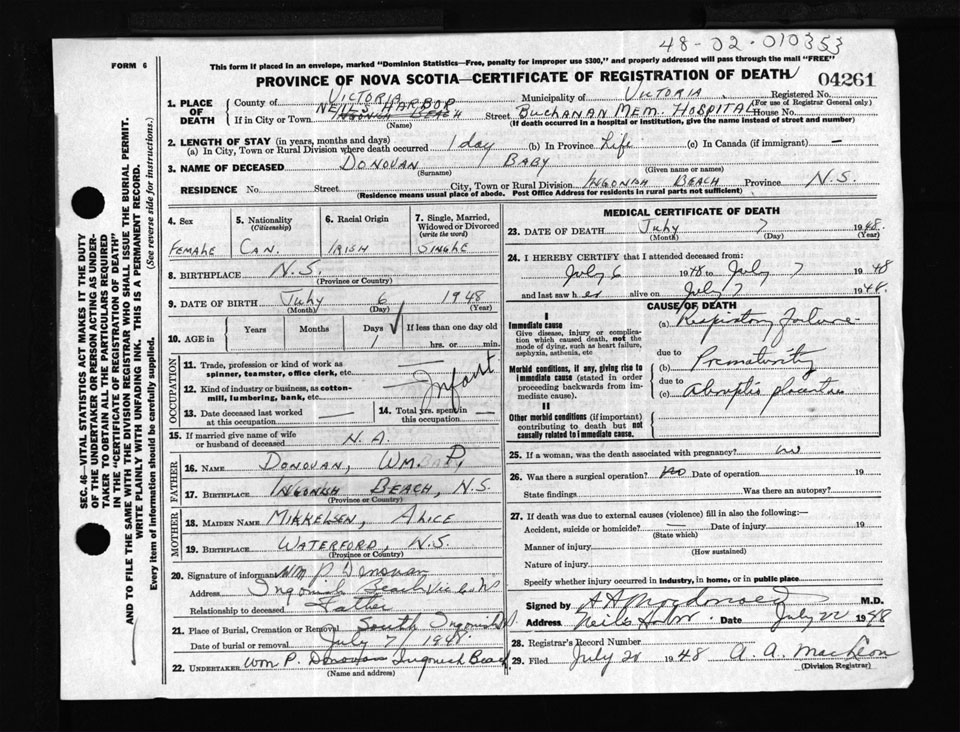 48-02-010353
FORM 6
This form if placed in an envelope, marked "Dominion Statistics—Free, penalty for improper use $300," and properly addressed will pass through the mail "FREE"
PROVINCE OF NOVA SCOTIA—CERTIFICATE OF REGISTRATION OF DEATH
04261
1. PLACE OF DEATH
County of VICTORIA Municipality of VICTORIA Registered No.
(For use of Registrar General only)
NEILS HARBOR
If in City or Town INGONISH BEACH Street BUCHANAN MEM. HOSPITAL House No.
(Name) (If death occurred in a hospital or institution, give the name instead of street and number)
2. LENGTH OF STAY (in years, months and days)
(a) In City, Town or Rural Division where death occurred 1 day (b) In Province Life (c) In Canada (if immigrant) —
3. NAME OF DECEASED DONOVAN BABY
(Surname) (Given name or names)
RESIDENCE No. Street City, Town or Rural Division INGONISH BEACH Province N.S.
(Residence means usual place of abode. Post Office Address for residents in rural parts not sufficient)
4. Sex
FEMALE
5. Nationality
(Citizenship)
CAN.
6. Racial Origin
IRISH
7. Single, Married,
Widowed or Divorced
(write the word)
SINGLE
8. BIRTHPLACE N.S.
(Province or Country)
9. DATE OF BIRTH JULY 6 1948
(Month) (Day) (Year)
10. AGE in
Years Months Days If less than one day old
1 hrs. or min.
OCCUPATION
11. Trade, profession or kind of work as
spinner, teamster, office clerk, etc.
Infant
12. Kind of industry or business, as cotton-
mill, lumbering, bank, etc.
13. Date deceased last worked
at this occupation
14. Total yrs. spent in
this occupation
15. If married give name of wife
or husband of deceased N.A.
FATHER
16. NAME DONOVAN, WM. P.
17. BIRTHPLACE INGONISH BEACH, N.S.
(Province or Country)
MOTHER
18. MAIDEN NAME MIKKELSEN, ALICE
19. BIRTHPLACE WATERFORD, N.S.
(Province or Country)
20. Signature of informant WM P. Donovan
Address Ingonish Beach Vic Co
Relationship to deceased Father
21. Place of Burial, Cremation or Removal South Ingonish
Date of burial or removal July 7, 1948
22. UNDERTAKER Wm P. Donovan Ingonish Beach
(Name and address)
MEDICAL CERTIFICATE OF DEATH
23. DATE OF DEATH July 7 1948
(Month) (Day) (Year)
24. I HEREBY CERTIFY that I attended deceased from:
July 6 1948 to July 7 1948
and last saw her alive on July 7 1948
CAUSE OF DEATH
I
Immediate cause
Give disease, injury or complica-
tion which caused death, not the
mode of dying, such as heart failure,
asphyxia, asthenia, etc
(a) Respiratory failure
due to
Morbid conditions, if any, giving rise to
immediate cause (stated in order
proceeding backwards from im-
mediate cause).
(b) Prematurity
due to
(c) Abruptio placentae
II
Other morbid conditions (if important)
contributing to death but not
causally related to immediate cause.
25. If a woman, was the death associated with pregnancy? no
26. Was there a surgical operation? no Date of operation 19
State findings Was there an autopsy?
27. If death was due to external causes (violence) fill in also the following:—
Accident, suicide or homicide? — Date of injury 19
(State which)
Manner of injury
(How sustained)
Nature of injury
Specify whether injury occurred in industry, in home, or in public place
Signed by M.D.
Address Neils Harbor Date July 22 1948
28. Registrar's Record Number
29. Filed July 20 1948 A. A. MacLeon
(Division Registrar)
SEC. 46—VITAL STATISTICS ACT MAKES IT THE DUTY
OF THE UNDERTAKER OR PERSON ACTING AS UNDER-
TAKER TO OBTAIN ALL THE PARTICULARS REQUIRED
IN THE "CERTIFICATE OF REGISTRATION OF DEATH"
AND TO FILE THE SAME WITH THE DIVISION REGISTRAR WHO SHALL ISSUE THE BURIAL PERMIT.
WRITE PLAINLY WITH UNFADING INK. THIS IS A PERMANENT RECORD.
Every item of information should be carefully supplied. (See reverse side for instructions.)